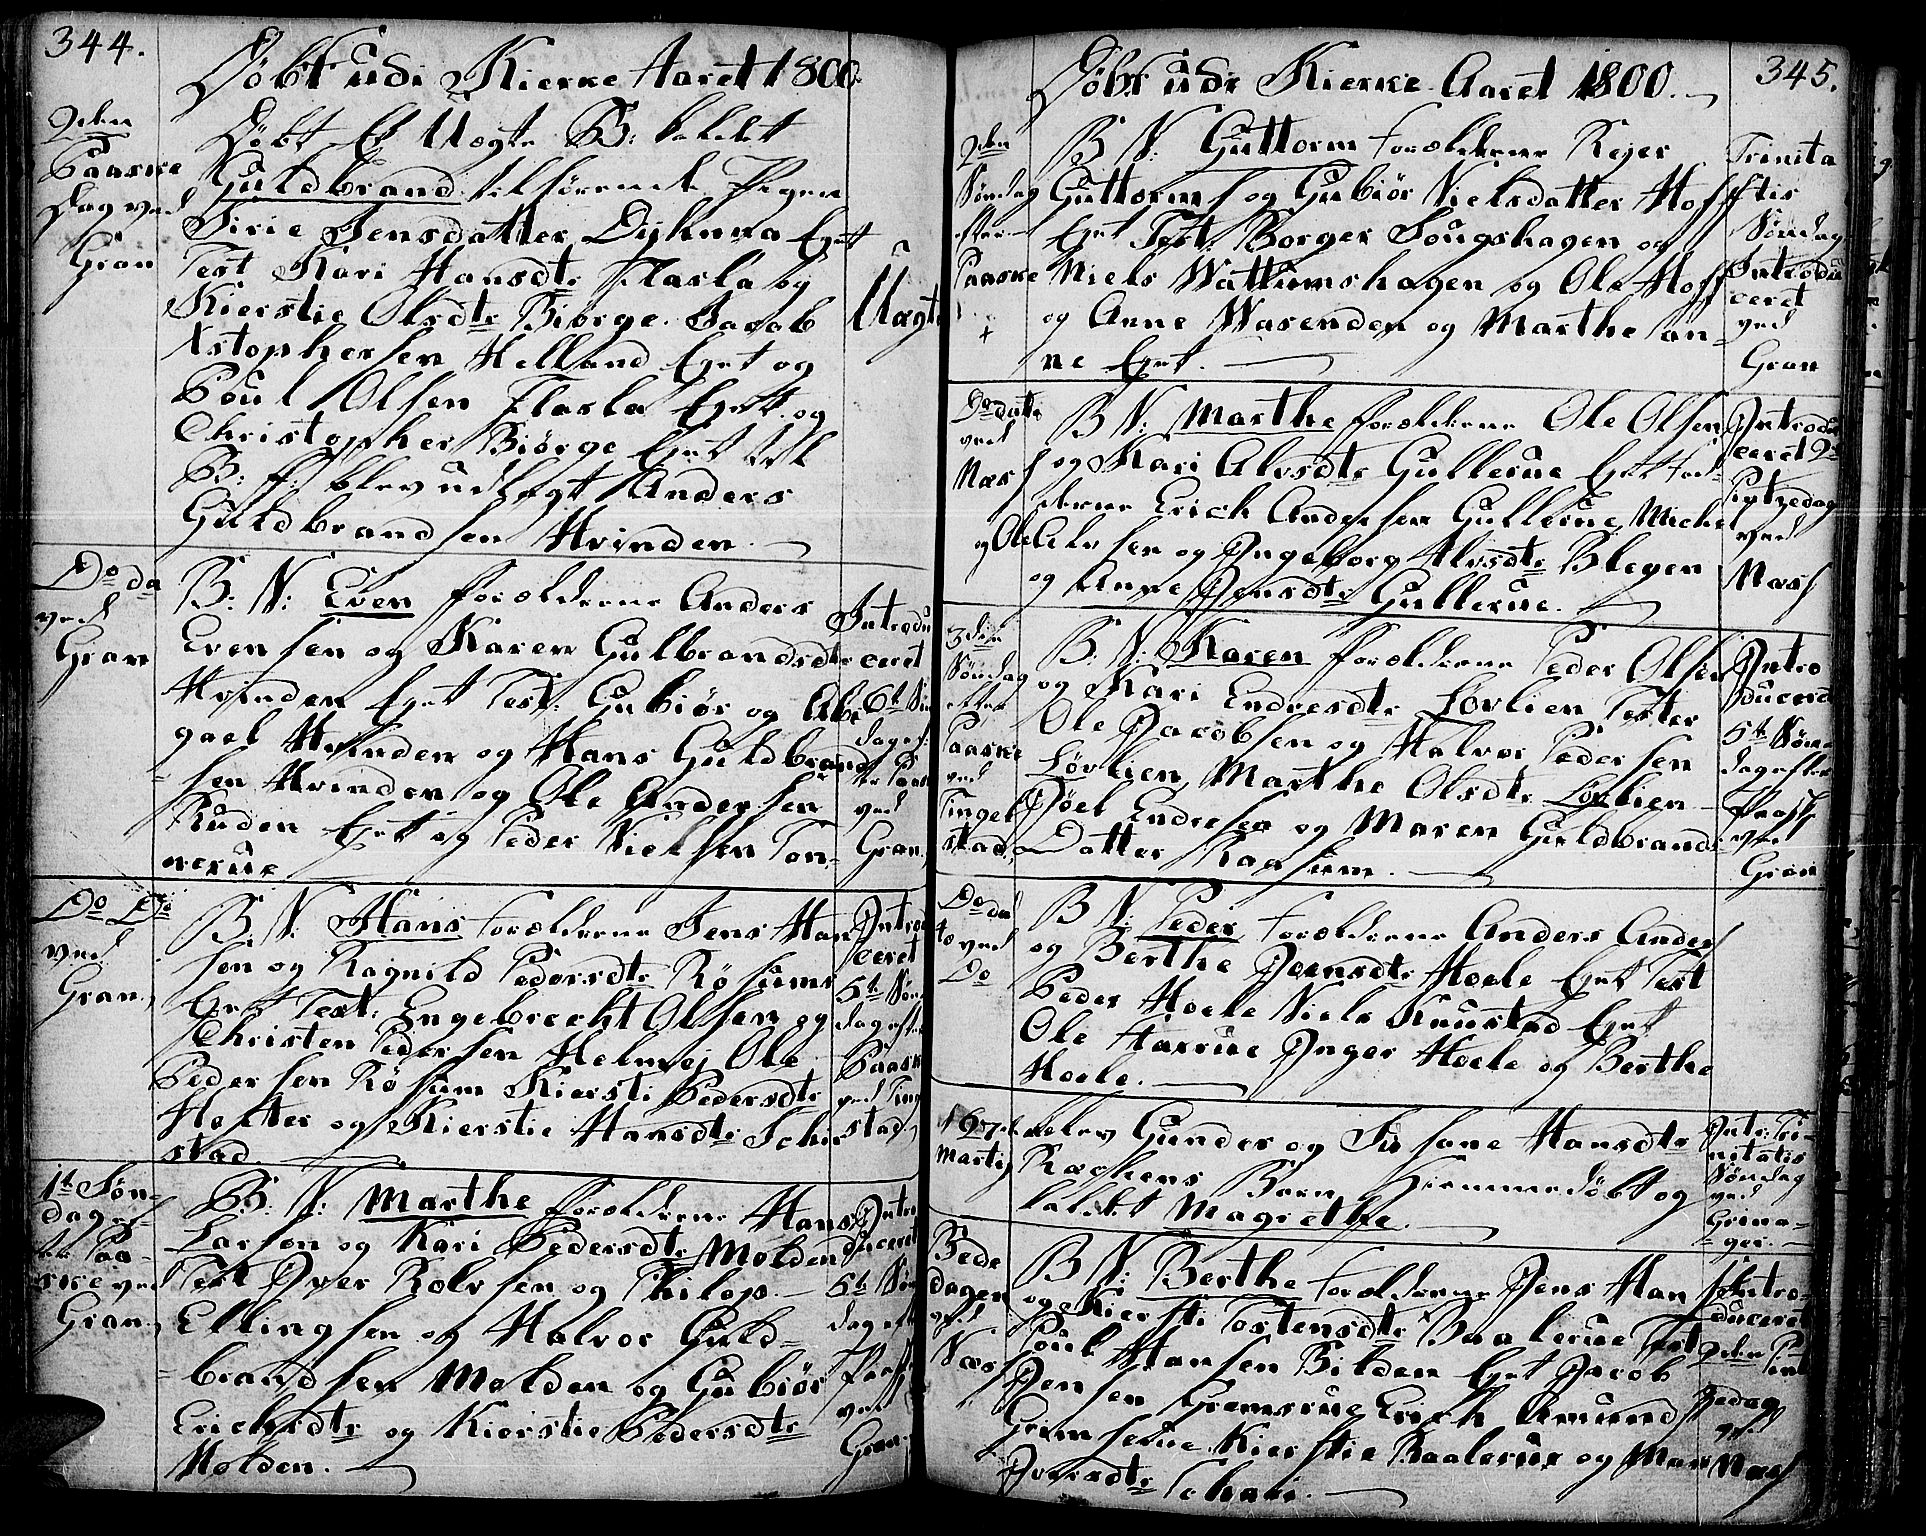 344.
Døbt udi Kierke Aaret 1800
2den
Paaske
Dag ved
Gran
Døbt Et Uægte B: kaldet
Guldbrand tilhørende Pigen
Sirie Jensdatter Dyhnna Eget
Test Kari Hansdtr Flasla og
Kierstie Olsdtr Biørge. Jacob
Xstophersen Helland Eget og
Poul Olsen Flasla Eget og
Christopher Biørge Eget til
B: f: blev udlagt Anders
Guldbrandsen Hvinden.
Uægte
Do da
ved
Gran
B: N: Even Forælderne Anders
Evensen og Karen Gulbrandsdtr
Hvinden Eget Test: Gubiør og Abi
gael Hvinden og Hans Guldbrand
sen Hvinden og Ole Andersen
Ruden Eget og Peder Nielsen Ton-
nerue
Introdu
ceret
6te Søn
dag ef
ter Paas
ved
Gran
Do Do
ved
Gran.
B: N: Hans Forælderne Jens Han
sen og Ragnild Pedersdtr Røsums
Eget Test: Engebrecht Olsen og
Christen Pedersen Helmej Ole
Pedersen Røsum Kiersti Pedersdtr
Hefter og Kierstie Hansdtr Schie
stad
Introd
ceret
5te Søn
dag efter
Paask
ved Ting
stad
1te Søn-
dag ef-
ter Paa-
ske ved
Gran.
B: N: Marthe Forælderne Hans
Larsen og Kari Pedersdtr Molden
Test Iver Rolvsen og Philop.
Ellingsen og Halvor Guld-
brandsen Molden og Gubiør
Erichsdtr og Kierstie Pedersdtr
Molden.
Intro
duceret
5te Søn
dag eft
Paaske
ved
Gran
345.
Døbt udi Kierke Aaret 1800.
2den
Søndag
efter
Paaske
B N: Guttorm Forælderne Rejer
Guttorms og Gubiør Nielsdatter Hoff
Eget Test: Borger Sougshagen og
Niels Wattumshagen og Ole Hoff
og Anne Wasenden og Marthe an-
ne Eget.
Trinita
tis
Søndag
Introdu
ceret
ved
Gran
Do dato
ved
Næs
B N: Marthe Forælderne Ole Olsen
og Kari Alvsdtr Gullerue Eget Fad-
derne Erich Andersen Gullerue, Michel
og Ole Alvsen og Ingeborg Alvsdtr Blegen
og Anne Jensdtr Gullerue.
Introdu
ceret 2
Pintzedag
ved
Næss
3die
Søndag
efter
Paaske
ved
Tingel
stad
B: N: Karen Forælderne Peder Olsen
og Kari Endresdtr Lørlien Tester
Ole Jacobsen og Halvor Pedersen
Lørlien, Marthe Olsdtr Lørlien
Joel Endresen og Maren Guldbrands-
Datter Raasum.
Intro
ducered
5te Søn-
dag efter
Paask
ved
Gran
Do da
to ved
Do
B N: Peder Forælderne Anders Anders
og Berthe Jensdtr Hoele Eget Test
Peder Hoele Niels Knustad Eget
Ole Haxrue Inger Hoele og Berthe
Hoele.
Martij
blev Gunder og Susane Hansdtr
Rækhens Barn Hiemmedøbt og
kaldet Magrethe.
Intr: Tri-
nitatis
Søndag
ved
Grina-
ger.
Bede
dagen
ved
Næs
B N: Berthe Forælderne Jens Hans
og Kiersti Tostensdtr Baalerue Test
Poul Hansen Bilden Eget Jacob
Jensen Gremsrue Erich Amunds
Grimserue Kierstie Baalerue og Mari
Iversdtr Schari.
Intro-
duceret
2den Pint
zedag
ved
Næss